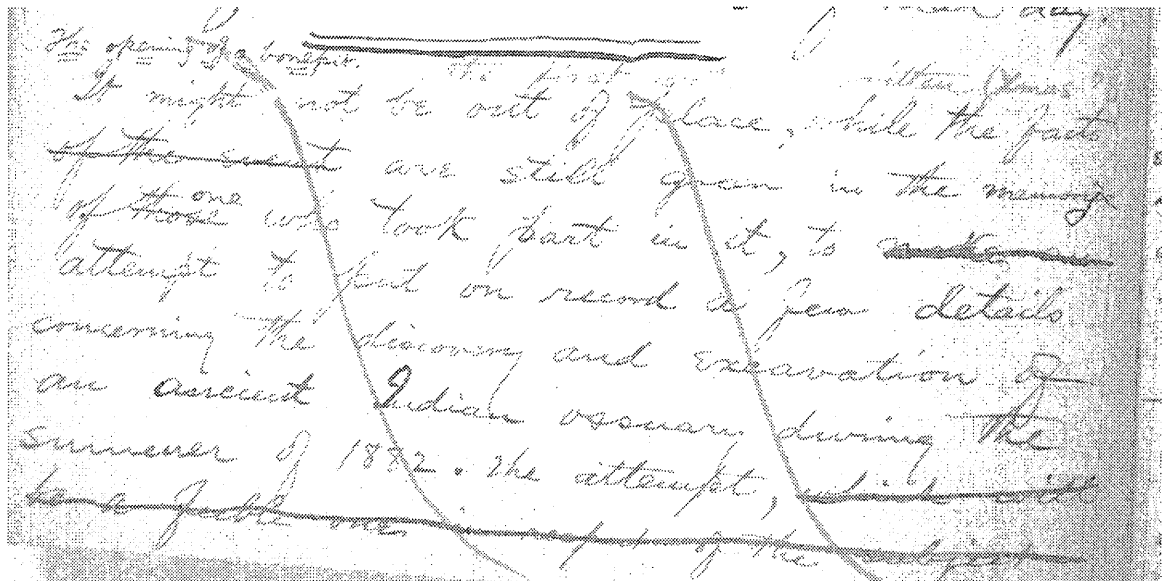 of their day.
The opening of a bonepit.
The first written Xmas
It might not be out of place, while the facts
of the event are still green in the memory
of those one who took part in it, to make an
attempt to put on record a few details
concerning the discovery and excavation of
an ancient Indian ossuary during the
summer of 1882. The attempt, which will
be a feeble one, in respect of the subject